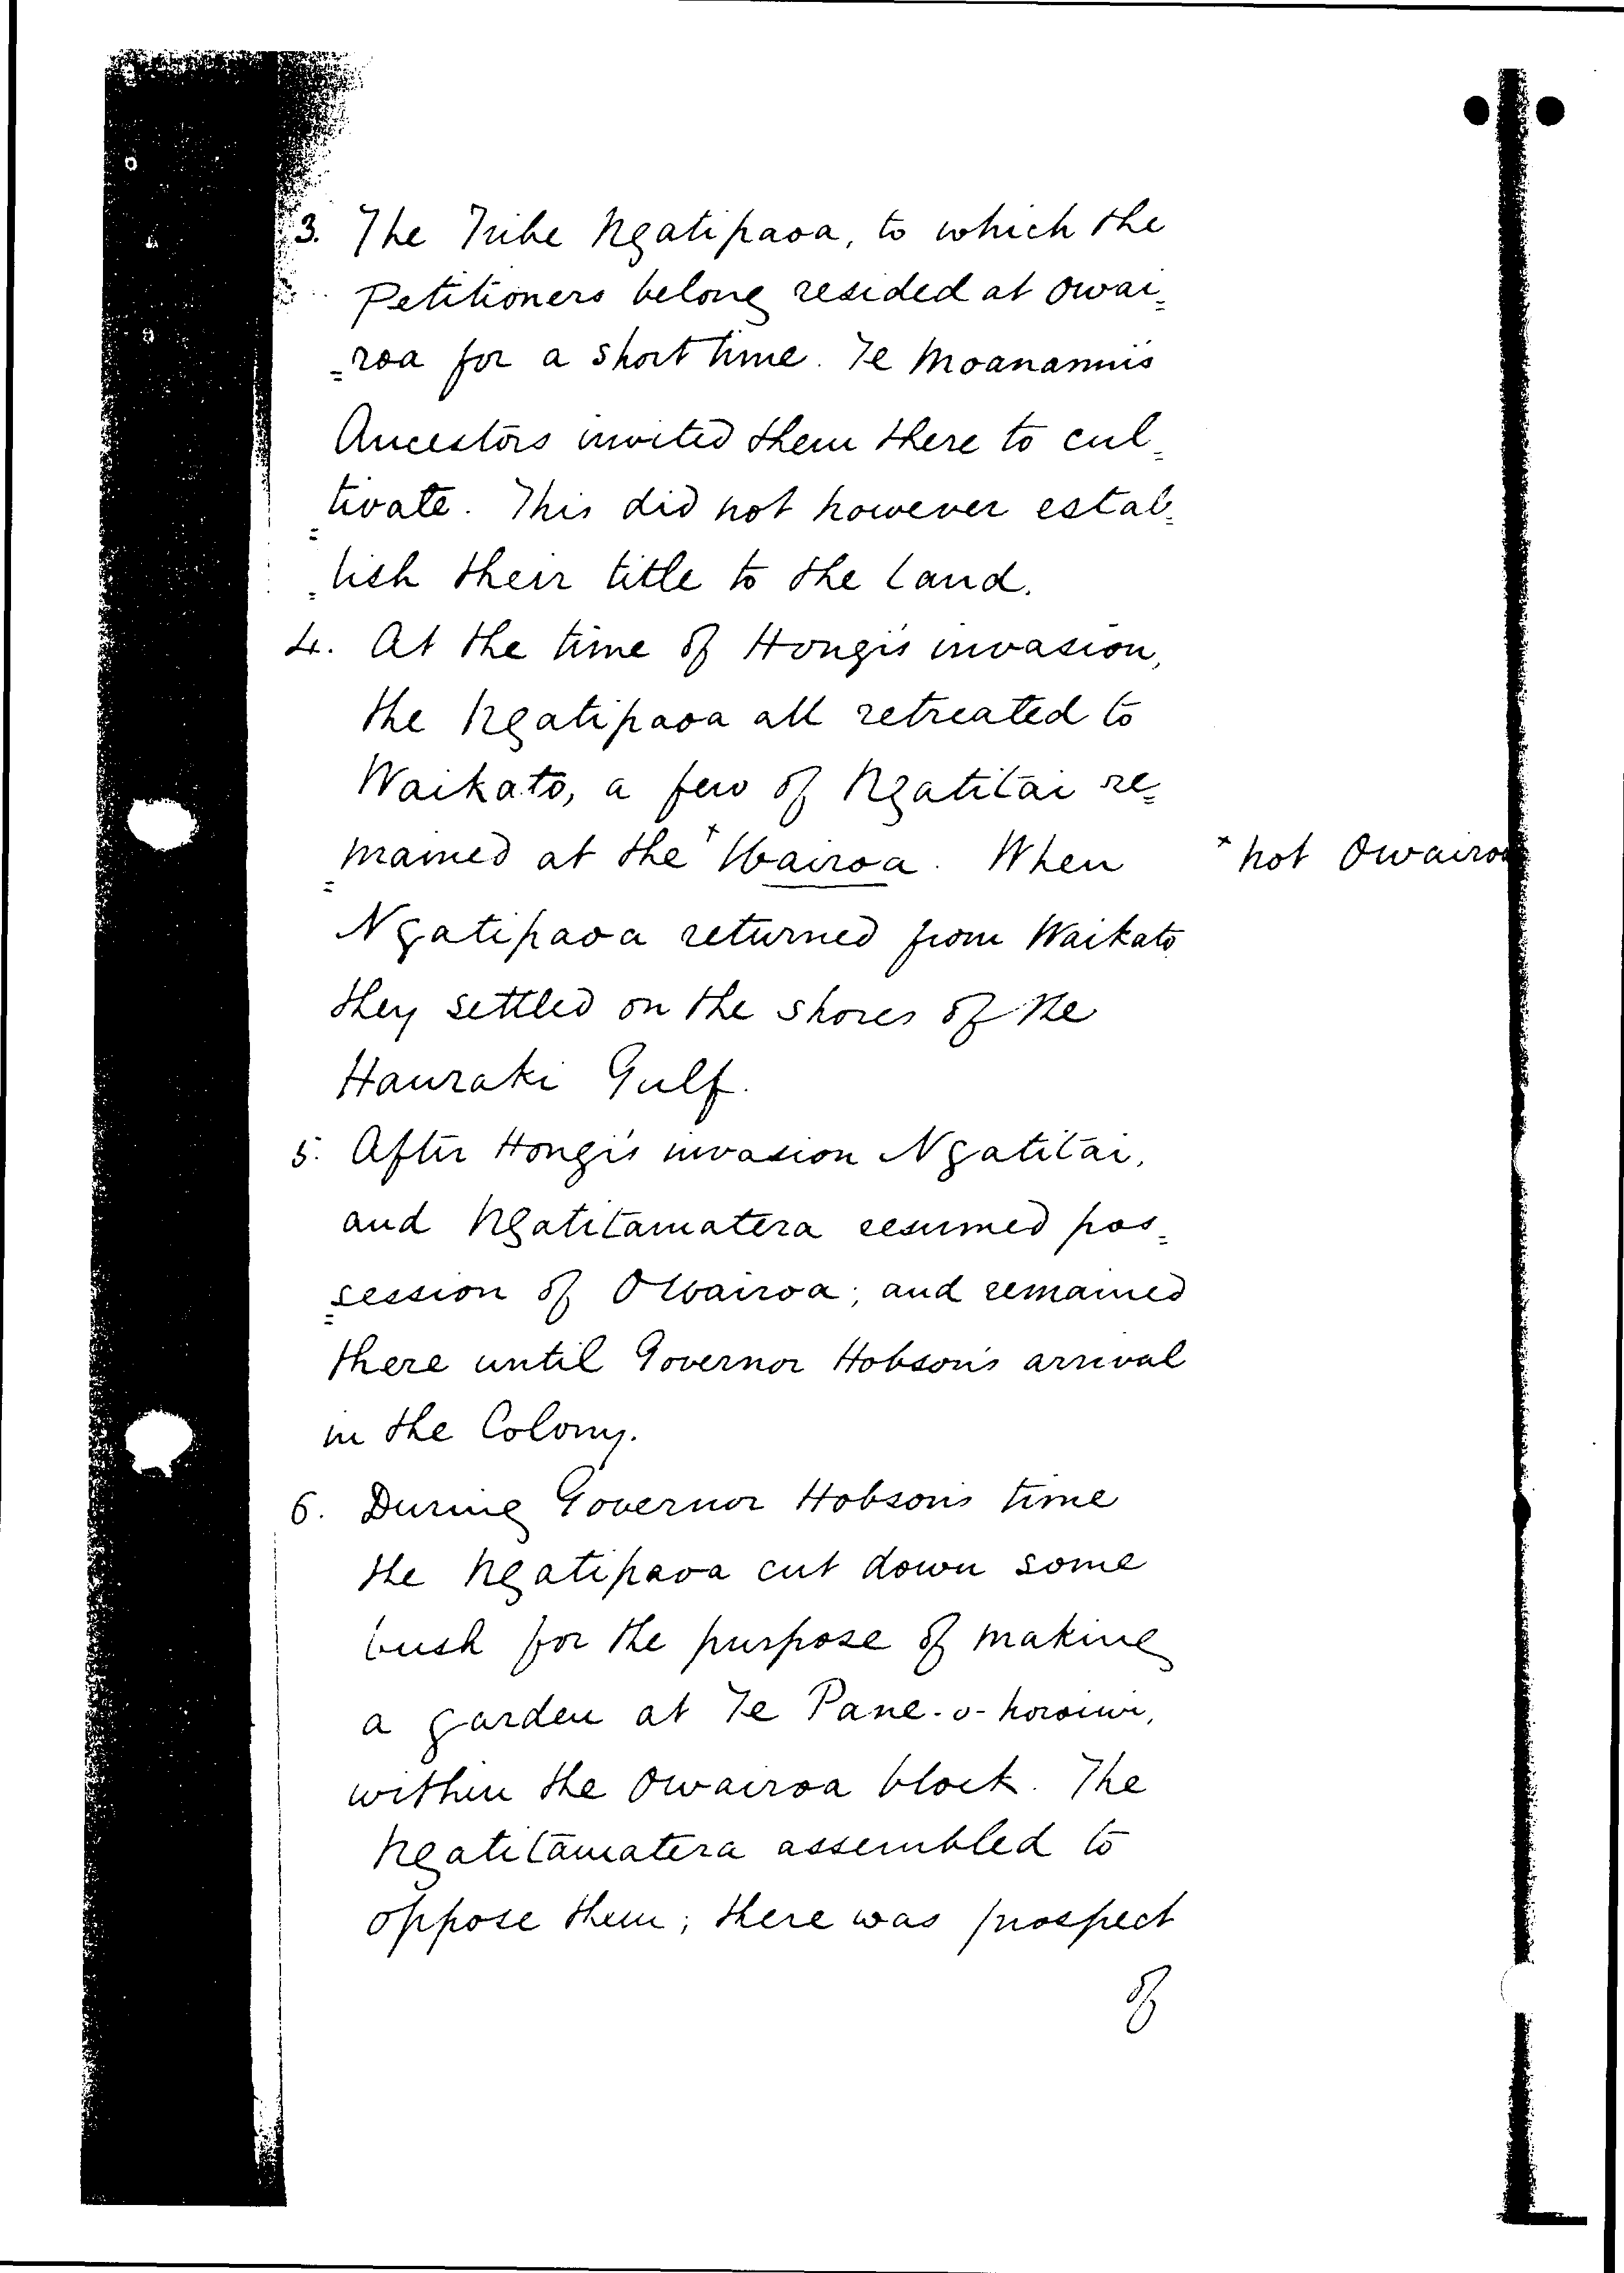 3. The Tribe Ngatipaoa, to which the
Petitioners belong resided at Owai=
=roa for a short time. Te Moananui's
Ancestors invited them there to cul=
=tivate. This did not however estab=
=lish their title to the land.
4. At the time of Hongi's invasion,
the Ngatipaoa all retreated to
Waikato, a few of Ngatitai re=
=mained at the x Wairoa. When
x not Owairoa
Ngatipaoa returned from Waikato
they settled on the shores of the
Hauraki Gulf.
5. After Hongi's invasion Ngatitai,
and Ngatitamatera resumed pos=
=session of OWairoa; and remained
there until Governor Hobson's arrival
in the Colony.
6. During Governor Hobson's time
the Ngatipaoa cut down some
bush for the purpose of making
a garden at Te Pane-o-horoiwi,
within the Owairoa block. The
Ngatitamatera assembled to
oppose them; there was prospect
of